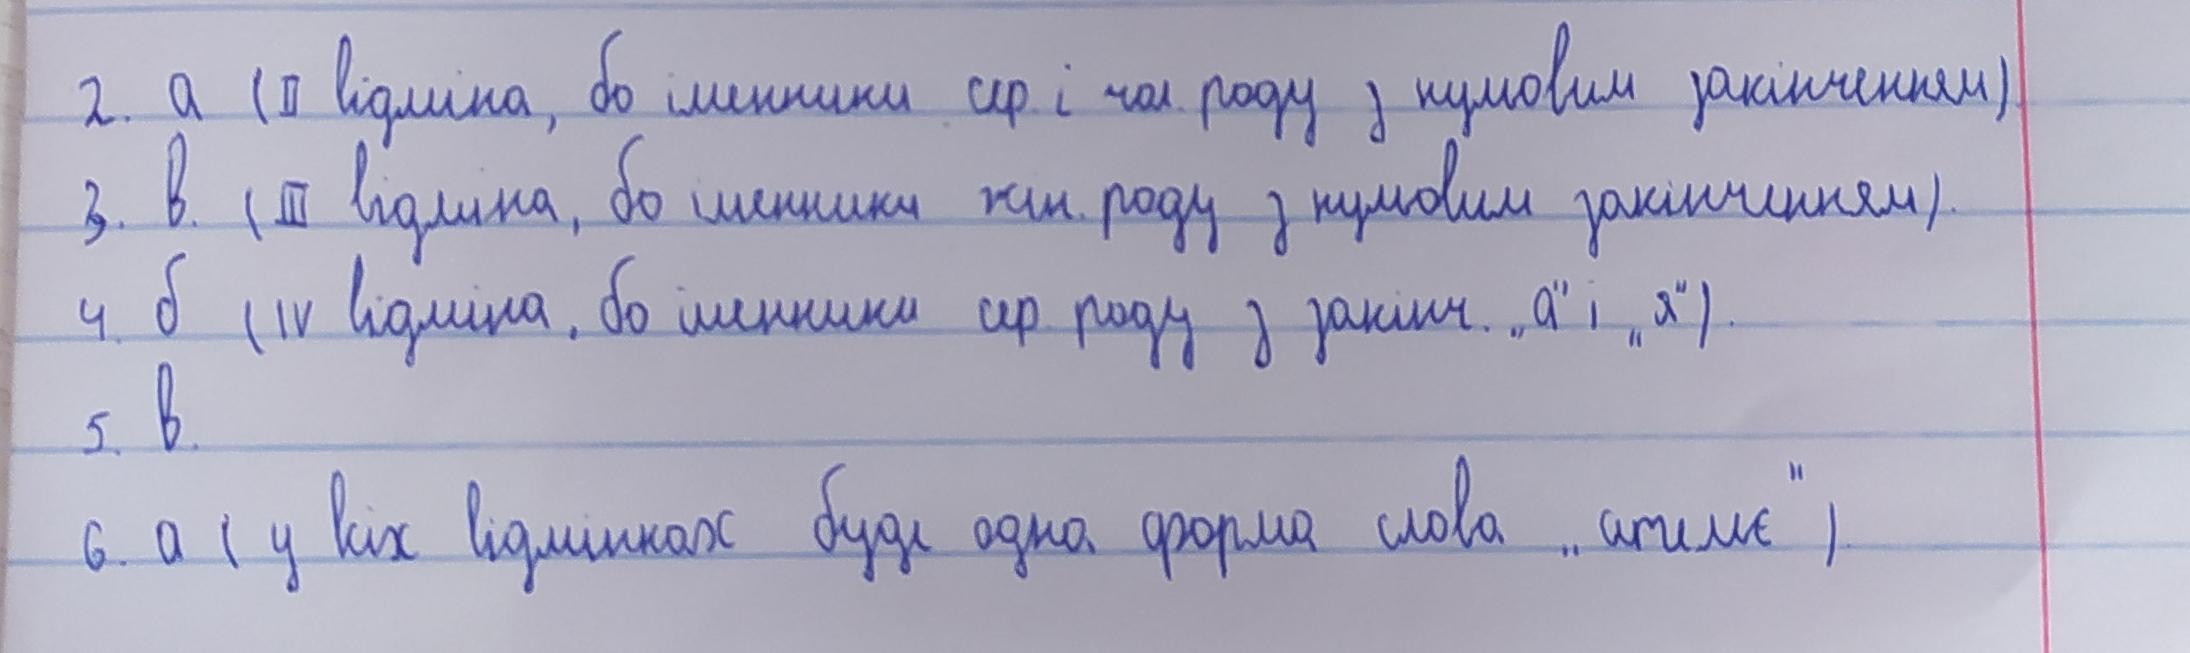 2. а (ІІ відміна, бо іменники сер і чол роду з нумовим закінченням)
3. в. (ІІІ відміна, бо іменники жін. роду з нумовим закінченням).
4. б (IV відміна, бо іменники сер. роду з закінч. „а" і „я").
5. в.
6. а ( у всіх відмінках буде одна форма слова „ательє").